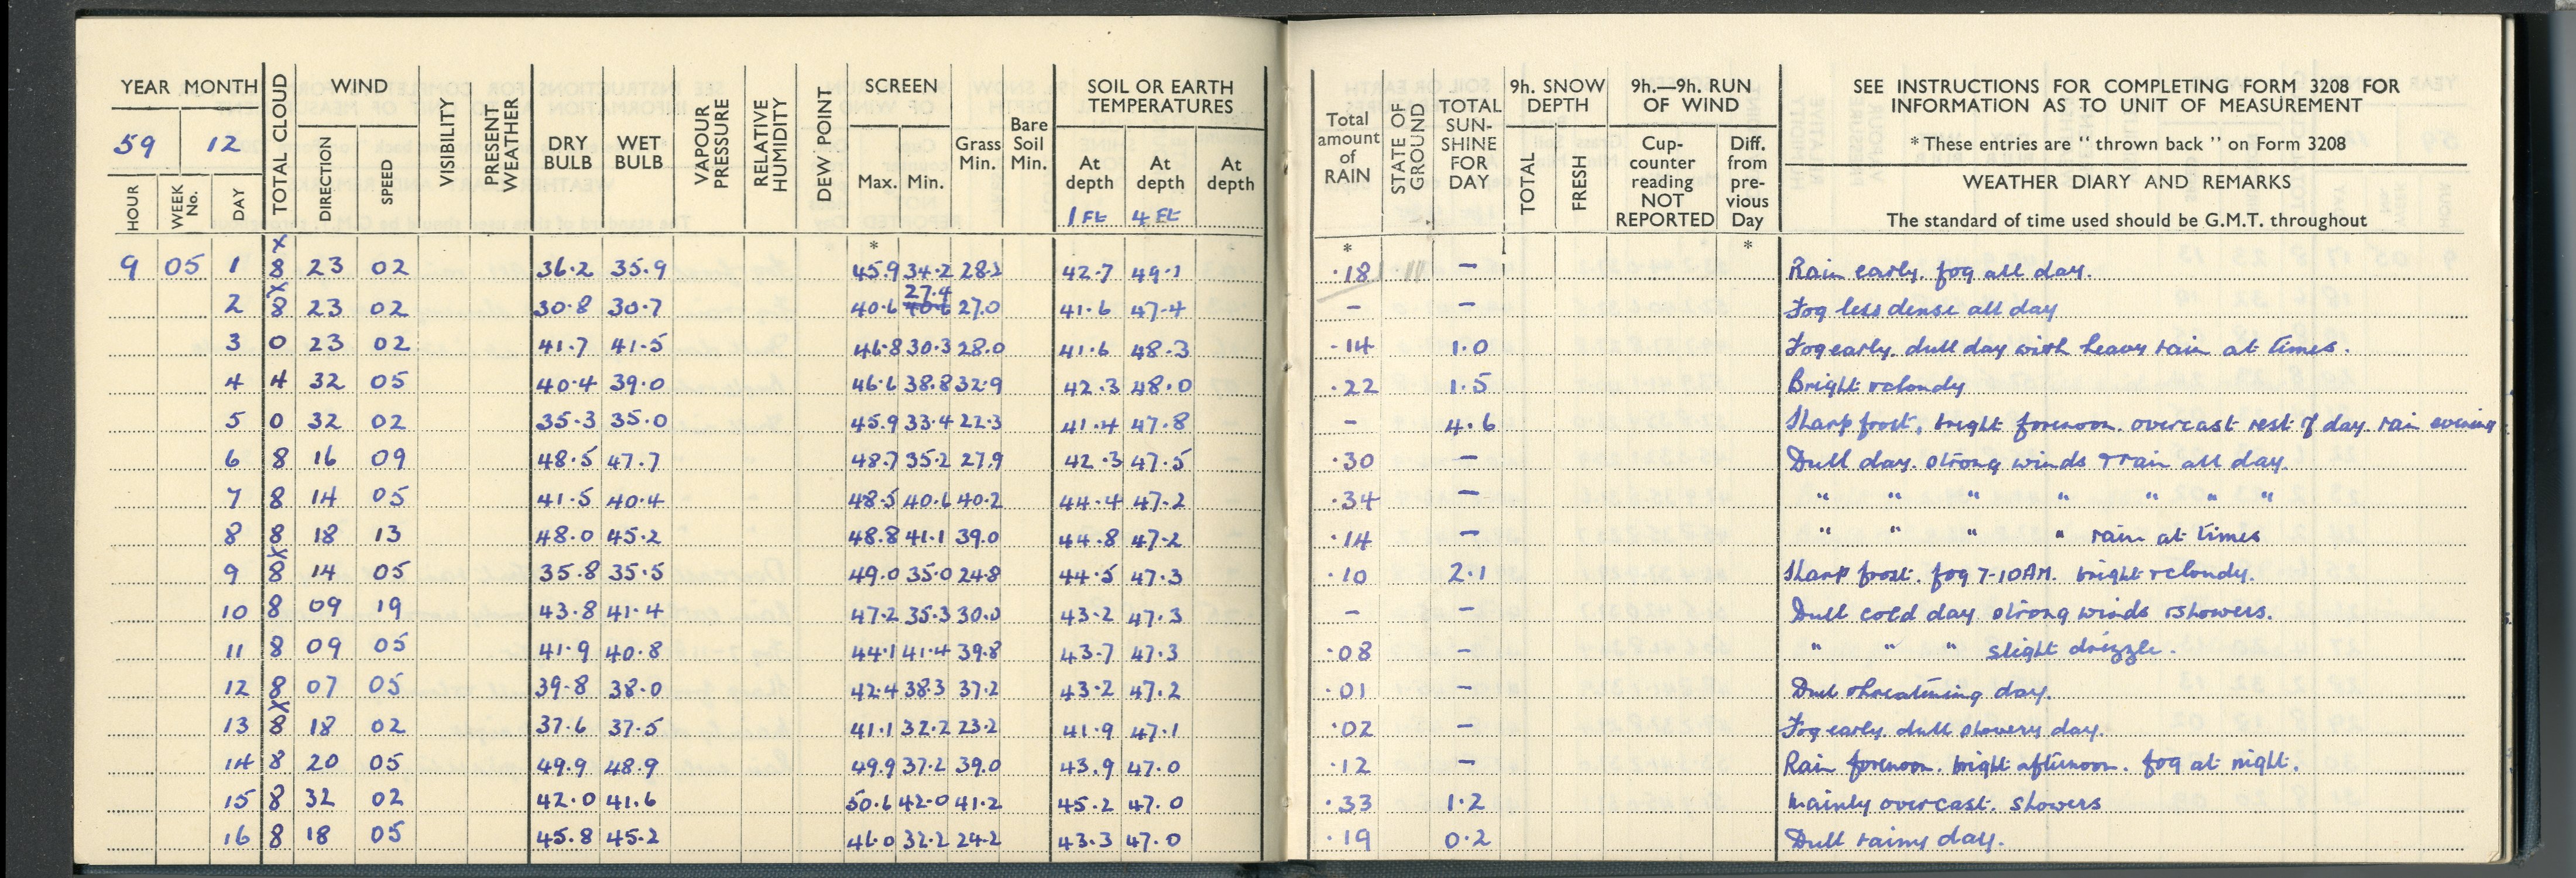 YEAR MONTH TOTAL CLOUD WIND VISIBILITY PRESENT WEATHER DRY BULB WET BULB VAPOUR PRESSURE RELATIVE HUMIDITY DEW POINT SCREEN Grass Min. Bare Soil Min. SOIL OR EARTH TEMPERATURES
59 12
HOUR WEEK No. DAY DIRECTION SPEED Max. Min. At depth At depth At depth
1 Ft 4 Ft
Total amount of RAIN STATE OF GROUND TOTAL SUN-SHINE FOR DAY 9h. SNOW DEPTH 9h.—9h. RUN OF WIND
TOTAL FRESH Cup-counter reading NOT REPORTED Diff. from pre-vious Day
SEE INSTRUCTIONS FOR COMPLETING FORM 3208 FOR
INFORMATION AS TO UNIT OF MEASUREMENT
* These entries are "thrown back" on Form 3208
WEATHER DIARY AND REMARKS
The standard of time used should be G.M.T. throughout
x * * *
9 05 1 8 23 02 36.2 35.9 45.9 34.2 28.2 42.7 49.1 .18 - Rain early. fog all day.
x 27.4
2 8 23 02 30.8 30.7 40.6 40.6 27.0 41.6 47.4 - - Fog less dense all day
3 0 23 02 41.7 41.5 46.8 30.3 28.0 41.6 48.3 .14 1.0 Fog early. dull day with heavy rain at times.
4 4 32 05 40.4 39.0 46.6 38.8 32.9 42.3 48.0 .22 1.5 Bright + cloudy
5 0 32 02 35.3 35.0 45.9 33.4 22.3 41.4 47.8 - 4.6 Sharp frost, bright forenoon. overcast rest of day. rain evening
6 8 16 09 48.5 47.7 48.7 35.2 27.9 42.3 47.5 .30 - Dull day. strong winds + rain all day.
7 8 14 05 41.5 40.4 48.5 40.6 40.2 44.4 47.2 .34 - " " " " " " "
8 8 18 13 48.0 45.2 48.8 41.1 39.0 44.8 47.2 .14 - " " " " rain at times
x
9 8 14 05 35.8 35.5 49.0 35.0 24.8 44.5 47.3 .10 2.1 Sharp frost. fog 7-10AM. bright + cloudy.
10 8 09 19 43.8 41.4 47.2 35.3 30.0 43.2 47.3 - - Dull cold day strong winds + showers.
11 8 09 05 41.9 40.8 44.1 41.4 39.8 43.7 47.3 .08 - " " " slight drizzle.
12 8 07 05 39.8 38.0 42.4 38.3 37.2 43.2 47.2 .01 - Dull threatening day.
x
13 8 18 02 37.6 37.5 41.1 32.2 23.2 41.9 47.1 .02 - Fog early. dull showery day.
14 8 20 05 49.9 48.9 49.9 37.2 39.0 43.9 47.0 .12 - Rain forenoon. bright afternoon. fog at night.
15 8 32 02 42.0 41.6 50.6 42.0 41.2 45.2 47.0 .33 1.2 Mainly overcast. showers
16 8 18 05 45.8 45.2 46.0 32.2 24.2 43.3 47.0 .19 0.2 Dull rainy day.